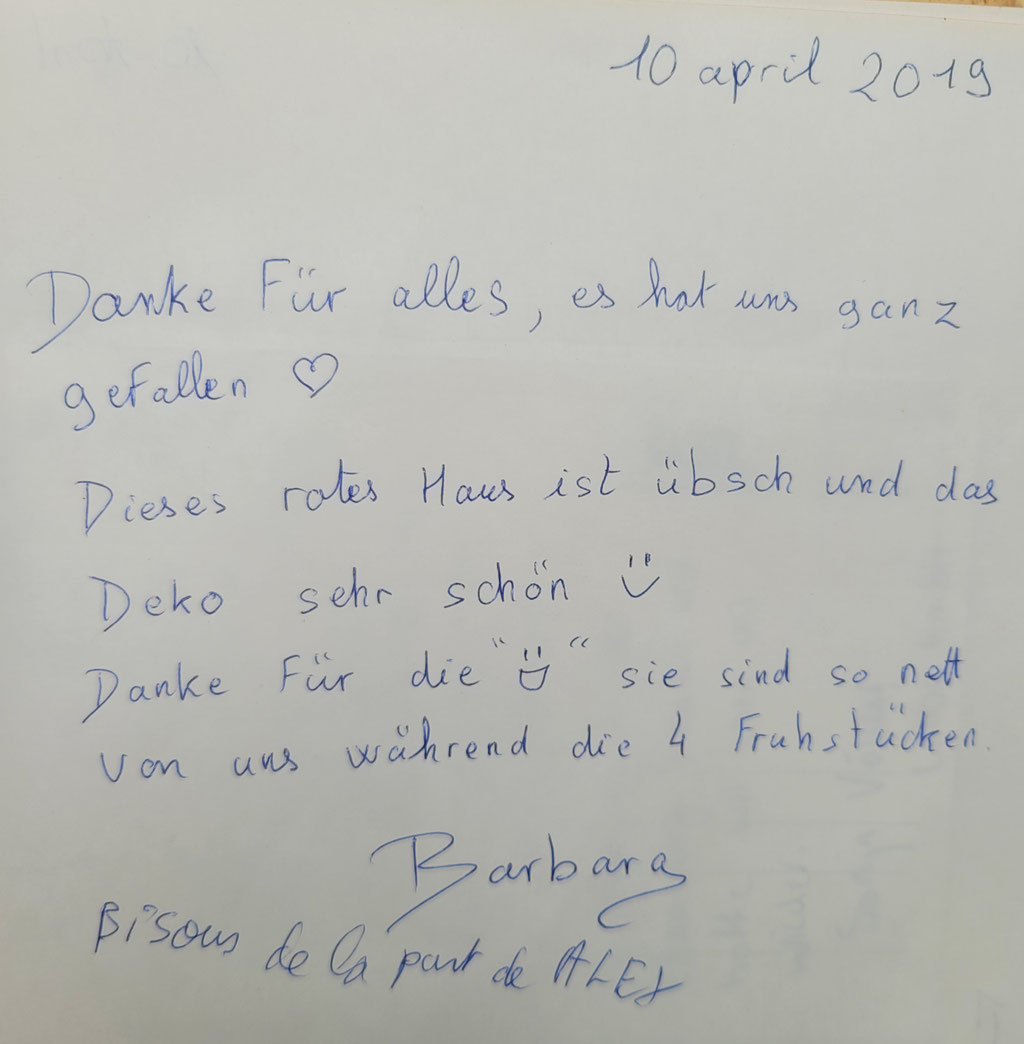 10 april 2019
Danke Für alles, es hat uns ganz
gefallen ♡
Dieses rotes Haus ist übsch und das
Deko sehr schön ü
Danke Für die "ü" sie sind so nett
von uns während die 4 Fruhstücken.
Barbara
Bisous de la part de ALEX